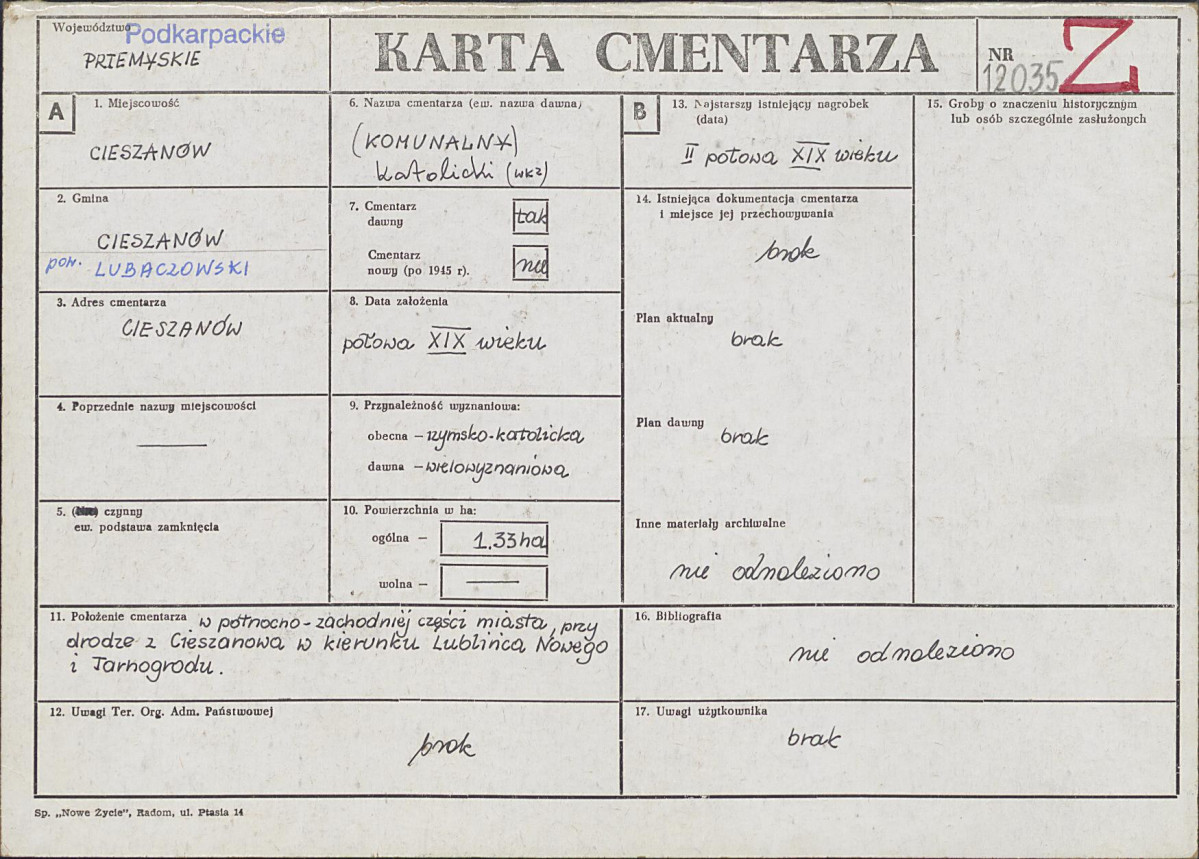 Województwo
Podkarpackie
PRZEMYSKIE
KARTA CMENTARZA
NR
12035
Z
A
1. Miejscowość
CIESZANÓW
2. Gmina
CIESZANÓW
pow. LUBACZOWSKI
3. Adres cmentarza
CIESZANÓW
4. Poprzednie nazwy miejscowości
5. ( ) czynny
ew. podstawa zamknięcia
6. Nazwa cmentarza (ew. nazwa dawna)
(KOMUNALNY)
katolicki (wkz)
7. Cmentarz
dawny
tak
Cmentarz
nowy (po 1945 r).
nie
8. Data założenia
połowa XIX wieku
9. Przynależność wyznaniowa:
obecna – rzymsko-katolicka
dawna – wielowyznaniowa
10. Powierzchnia w ha:
ogólna – 1.33ha
wolna –
11. Położenie cmentarza w północno-zachodniej części miasta, przy
drodze z Cieszanowa w kierunku Lublińca Nowego
i Tarnogrodu.
12. Uwagi Ter. Org. Adm. Państwowej
brak
B
13. Najstarszy istniejący nagrobek
(data)
II połowa XIX wieku
14. Istniejąca dokumentacja cmentarza
i miejsce jej przechowywania
brak
Plan aktualny
brak
Plan dawny
brak
Inne materiały archiwalne
nie odnaleziono
15. Groby o znaczeniu historycznym
lub osób szczególnie zasłużonych
16. Bibliografia
nie odnaleziono
17. Uwagi użytkownika
brak
Sp. „Nowe Życie", Radom, ul. Ptasia 14